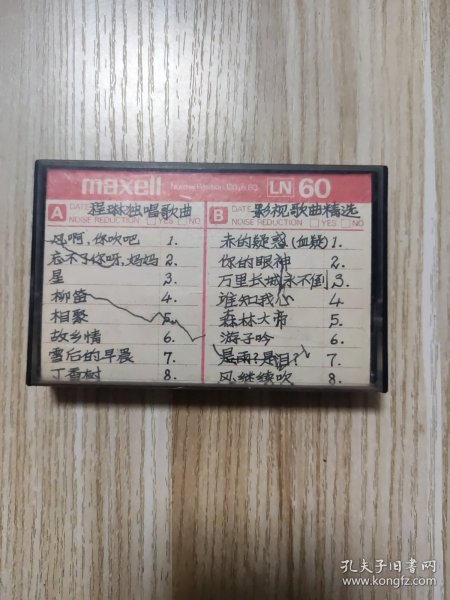 maxell Normal Position · 120μs EQ LN 60
A DATE 程琳独唱歌曲
NOISE REDUCTION YES NO
风啊,你吹吧 1.
忘不了你呀,妈妈 2.
星 3.
柳笛 4.
相聚 5.
故乡情 6.
雪后的早晨 7.
丁香树 8.
B DATE 影视歌曲精选
NOISE REDUCTION YES NO
赤的疑惑(血疑) 1.
你的眼神 2.
万里长城永不倒 3.
谁知我心 4.
森林大帝 5.
游子吟 6.
是雨?是泪? 7.
风继续吹 8.
孔夫子旧书网
www.kongfz.com